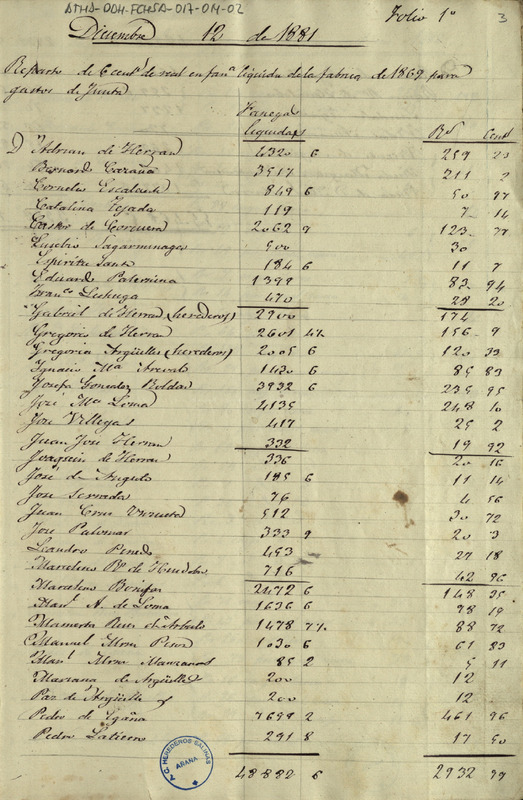 ATHA-DDH-FCHSA-017-014-02
Folio 1º 3
Diciembre 12 de 1881
Reparto de 6 cent.s de real en fan.a liquida de la fabrica de 1869 para
gastos de Junta
Fanegas
liquidas R.s Cent.s
D Adrian de Herran 4320 6 259 23
Bernardo 3517 211 2
Cornelio Escalante 849 6 50 97
Catalina Tejada 119 7 14
Castor de 2062 9 123 77
Eusebio Sagarminaga 500 30
Espiritu Santo 184 6 11 7
Eduardo Paternina 1399 83 94
Fran.co Lechuga 470 28 20
Gabriel de Herran (herederos) 2900 174
Gregorio de Herran 2601 4½ 156 9
Gregoria Argüelles (herederos) 2005 6 120 33
Ignacio M.a Arevalo 1430 6 85 83
Josefa Gonzalez Roldan 3932 6 235 95
José M.a Loma 4135 248 10
José Villegas 417 25 2
Juan José Herran 332 19 92
Joaquin de Herran 336 20 16
José de Angulo 185 6 11 14
José Serrada 76 4 56
Juan Cruz 512 30 72
José Palomar 333 9 20 3
Leandro Pinedo 453 27 18
Marcelino 716 42 96
Marcelino Bonifaz 2472 6 148 35
Man.l A. de Loma 1636 6 98 19
Mamerta Ruiz de Arbulo 1478 7½ 88 72
Manuel Mria Perea 1030 6 61 83
Man.l Mria Manzanos 85 2 5 11
Mariana de Argüelles 200 12
Paz de Argüelles 200 12
Pedro de Egaña 7699 2 461 96
Pedro 291 8 17 50
48882 6 2932 99
A.C. HEREDEROS-SALINAS
AÑANA